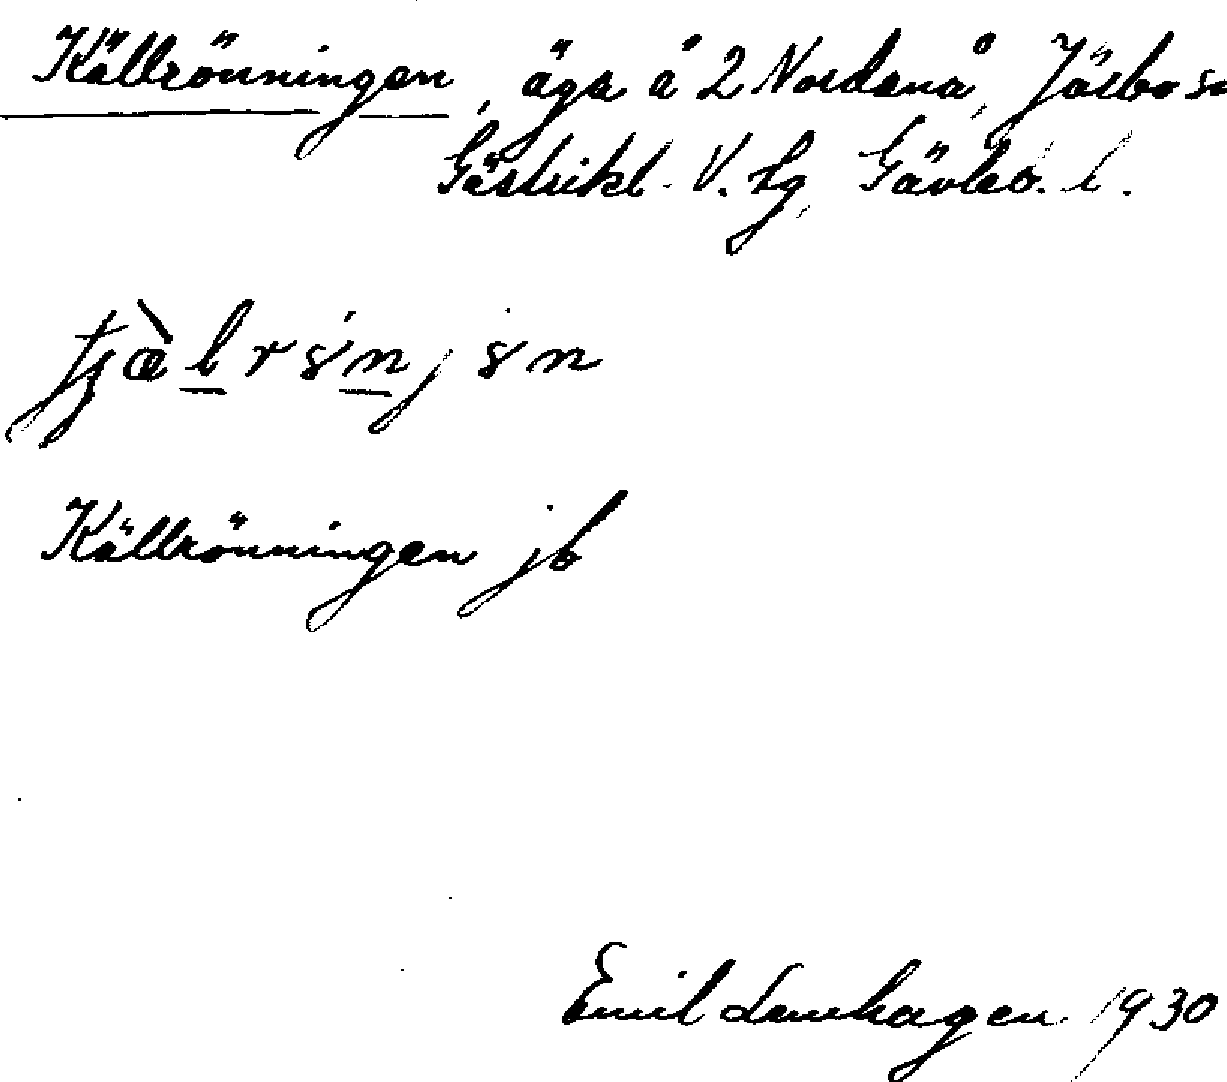 Källrönningen, äga å 2 Nordanå, Järbo sn
Gästrikl. V. tg, Gävleb. l.
Källrönningen jb
Emil Lemhagen 1930